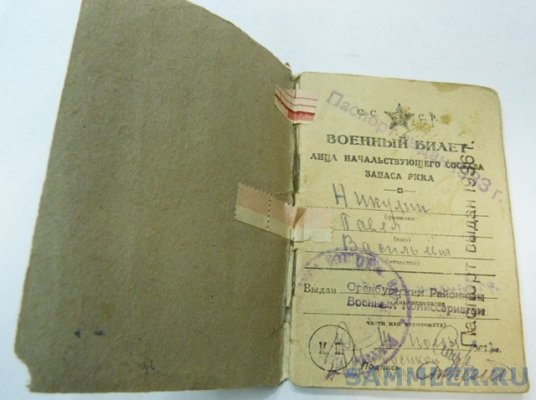 СССР
Паспорт выдан 1933 г.
ВОЕННЫЙ БИЛЕТ
ЛИЦА НАЧАЛЬСТВУЮЩЕГО СОСТАВА
ЗАПАСА РККА
Никулин
(фамилия)
Павел
(имя)
Василье
(отчество)
Выдан Оренбургским Районным
Военным Комиссариатом
части или военкомата)
М. П.
Подпись
Паспорт выдан 1936 г.
SAMMLER.RU